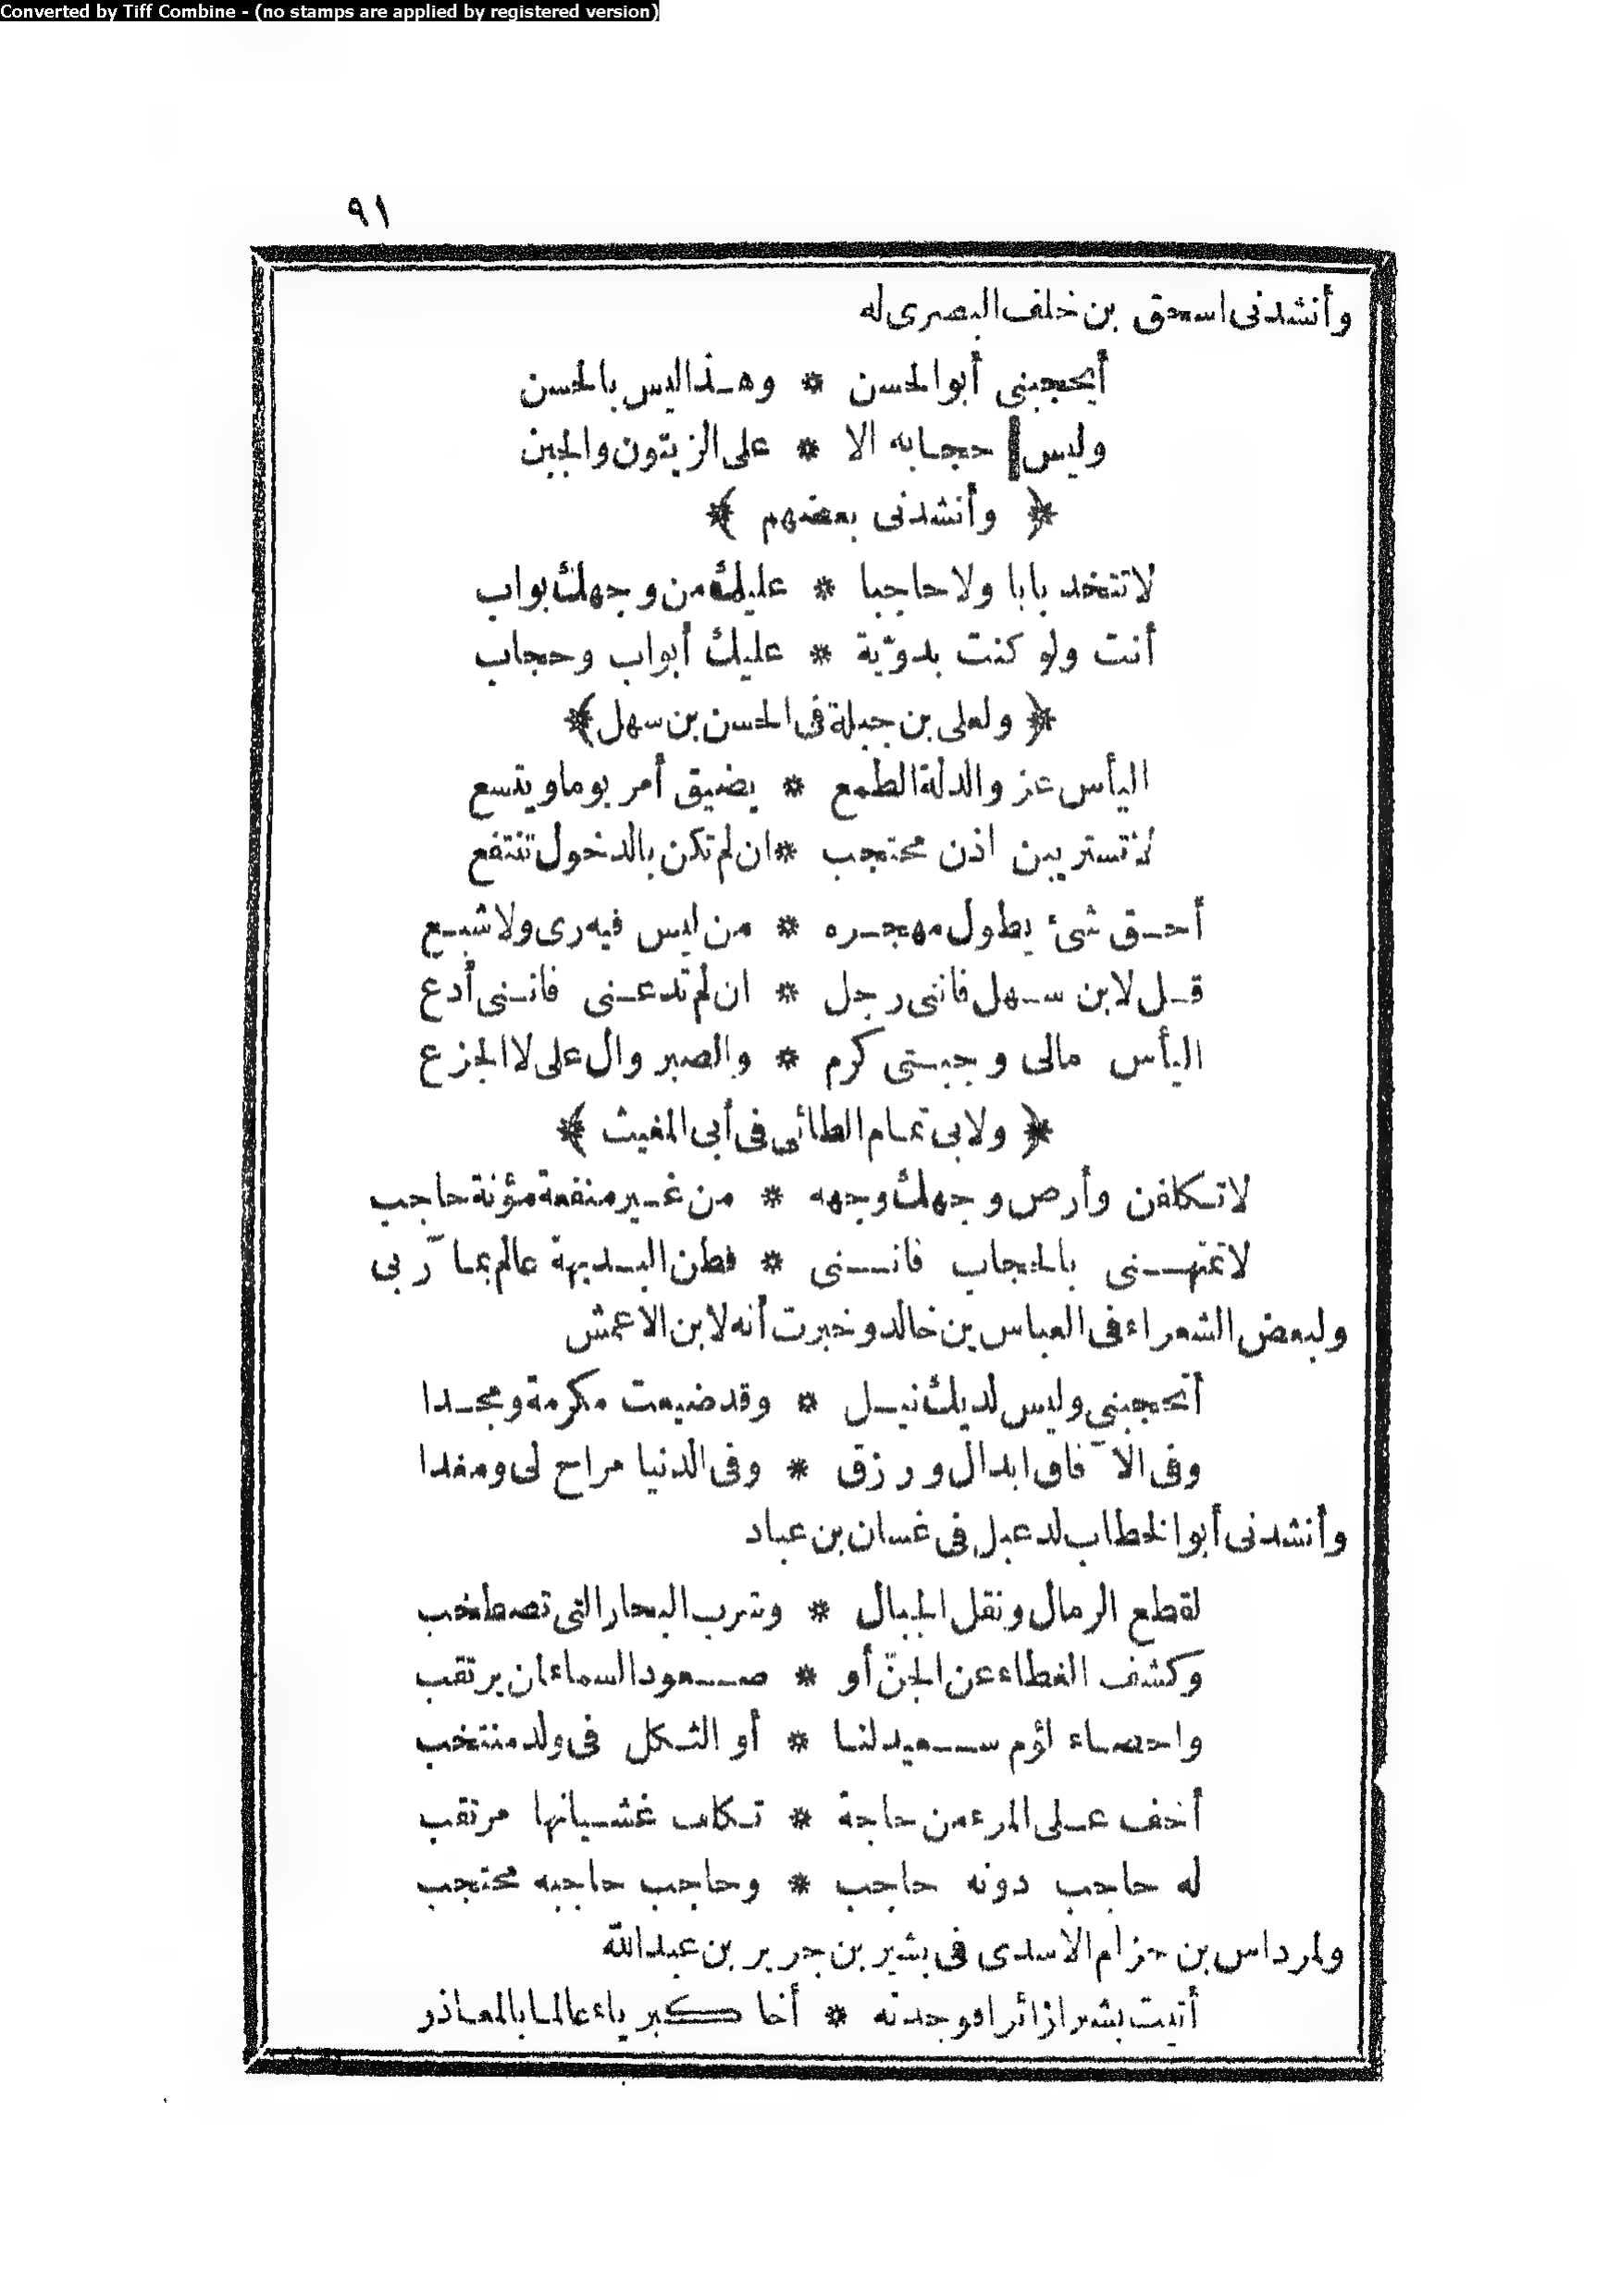 Converted by Tiff Combine - (no stamps are applied by registered version)
٩١
وأنشدنى اسحق بن خلف البصرى له
أيحجبنى أبوالحسن * وهـذاليس بالحسن
وليس حجابه الا * على الزيتون والجبن
﴿ وأنشدنى بعضهم ﴾
لاتتخذ بابا ولاحاجبا * عليك من وجهك بواب
أنت ولو كنت بدوّية * عليك أبواب وحجاب
﴿ ولعلى بن جبلة فى الحسن بن سهل ﴾
اليأس عز والذلة الطمع * يضيق أمر يوما ويتسع
لاتستريبن اذن محتجب * ان لم تكن بالدخول تنتفع
أحـق شئ يطول مهجـره * من ليس فيه رى ولا شبـع
قـل لابن سـهل فاننى رجل * ان لم تدعـنى فانـنى أدع
اليأس مالى وجبـتى كرم * والصبر وال على لا الجزع
﴿ ولابى تمـام الطائى فى أبى المغيث ﴾
لاتـكلفن وأرض وجهك وجهه * من غـير منفعة مؤنة حاجب
لاتمتهــنى بالحجاب فانــنى * فطن البـديهة عالم بمـا ربى
ولبعض الشعراء فى العباس بن خالد وخبرت أنه لابن الاعمش
أتحجبنى وليس لديك نيـل * وقد ضيعت مكرمة ومجـدا
وفى الآفاق ابدال ورزق * وفى الدنيا مراح لى ومغدا
وأنشدنى أبوالخطاب لدعبل فى غسان بن عباد
لقطع الرمال ونقل الجبال * وشرب البحار التى تصطخب
وكشف الغطاء عن الجنّ أو * صــعود السماء ان يرتقب
واحصـاء لؤم ســعيد لنـا * أو الثـكل فى ولد منتخب
أخف عـلى المرء من حاجة * تـكلف غشـيانها مرتقب
له حاجب دونه حاجب * وحاجب حاجبه محتجب
ولمرداس بن حزام الاسدى فى بشير بن جرير بن عبدالله
أتيت بشيرا زائرا فوجدته * أخا كبرياء عالمـا بالمعـاذر